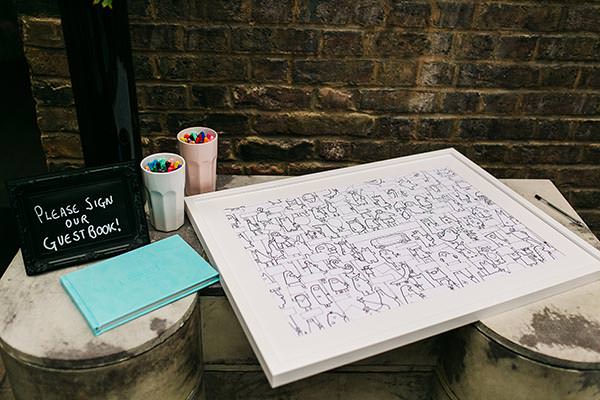 PLEASE SIGN
OUR
GUEST BOOK!